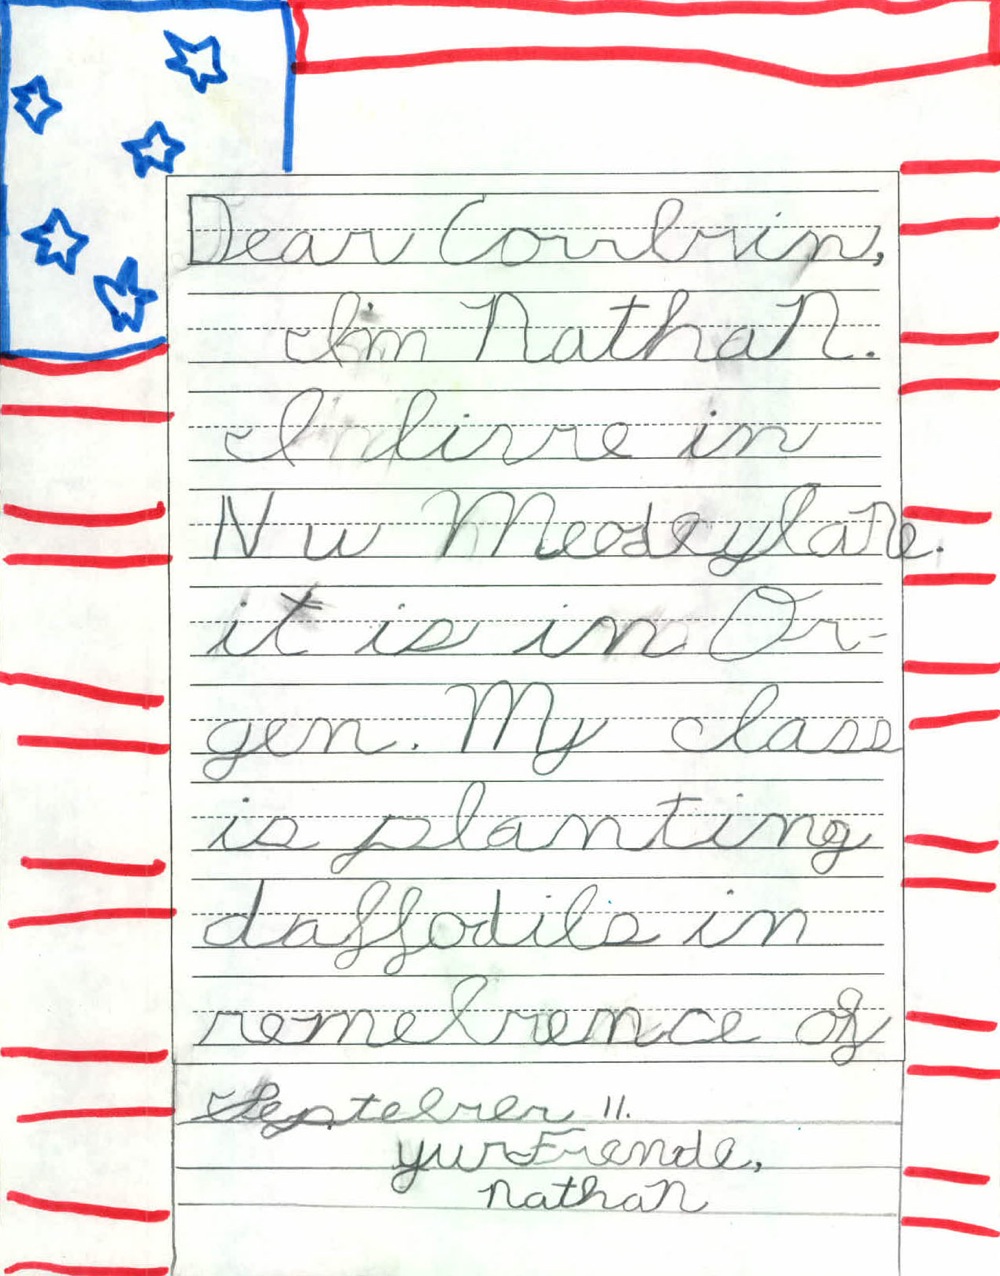 Dear Courbrin,
I'm Nathan.
I livve in
Nu Meodeylane.
it is in Or-
gen. My class
is planting
daffodils in
remebrence of
Septebrer 11.
yur Frende,
nathan